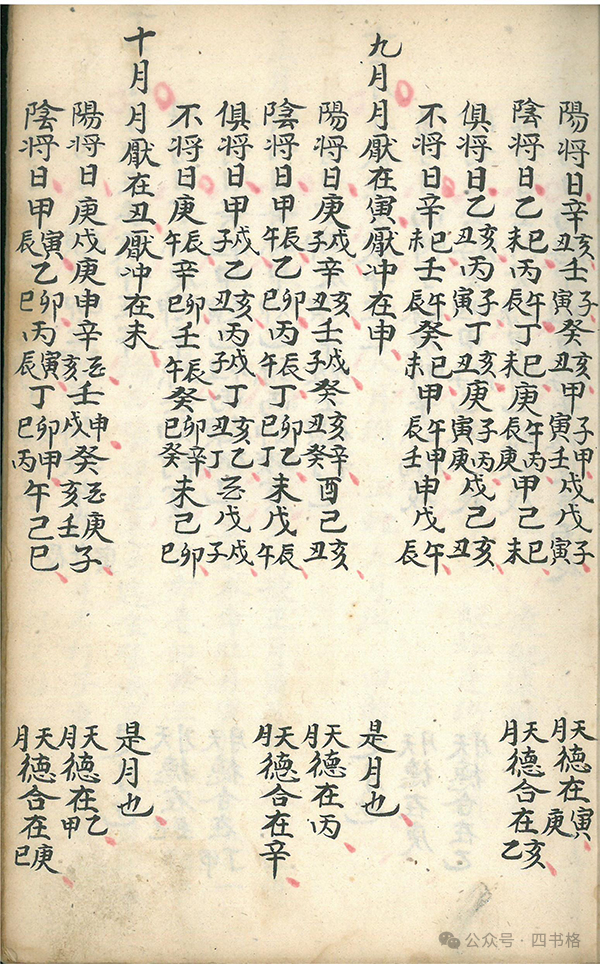 陽将日辛亥丑壬子寅癸亥丑甲子寅甲壬戌戊子寅
陰将日乙巳未丙午辰丁巳未庚午辰丙庚甲己巳未
俱将日乙亥丑丙子寅丁亥丑庚子寅丙庚戌己亥丑
不将日辛巳未壬午辰癸巳未甲午辰甲壬申戊午辰
天月德在寅庚
天月德合在亥乙
九月月厭在寅厭冲在申
是月也
陽将日庚戌子辛亥丑壬戌子癸亥丑辛癸酉己亥丑
陰将日甲辰午乙卯巳丙辰午丁卯巳乙丁未戊辰午
俱将日甲戌子乙亥丑丙戌子丁亥丑乙丁酉戊戌子
不将日庚辰午辛卯巳壬辰午癸卯巳辛癸未己卯巳
天月德在丙
天月德合在辛
十月月厭在丑厭冲在未
是月也
陽将日庚戌庚申辛酉亥壬申戌癸酉亥庚壬子
陰将日甲寅辰乙卯巳丙寅辰丁卯巳甲丙午己巳
天月德在乙甲
天月德合在庚巳
公众号·四书格